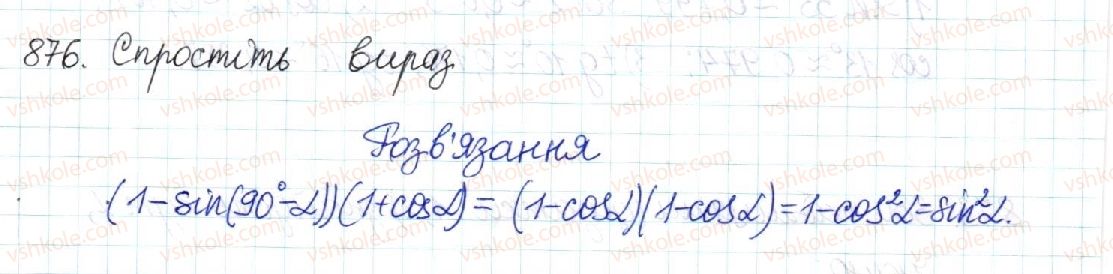 876. Спростіть вираз
Розв'язання
(1-sin(90°-α))(1+cosα) = (1-cosα)(1-cosα) = 1-cos²α = sin²α.
vshkole.com